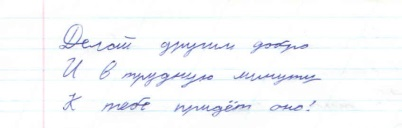 Делай другим добро
И в трудную минуту
К тебе придёт оно!